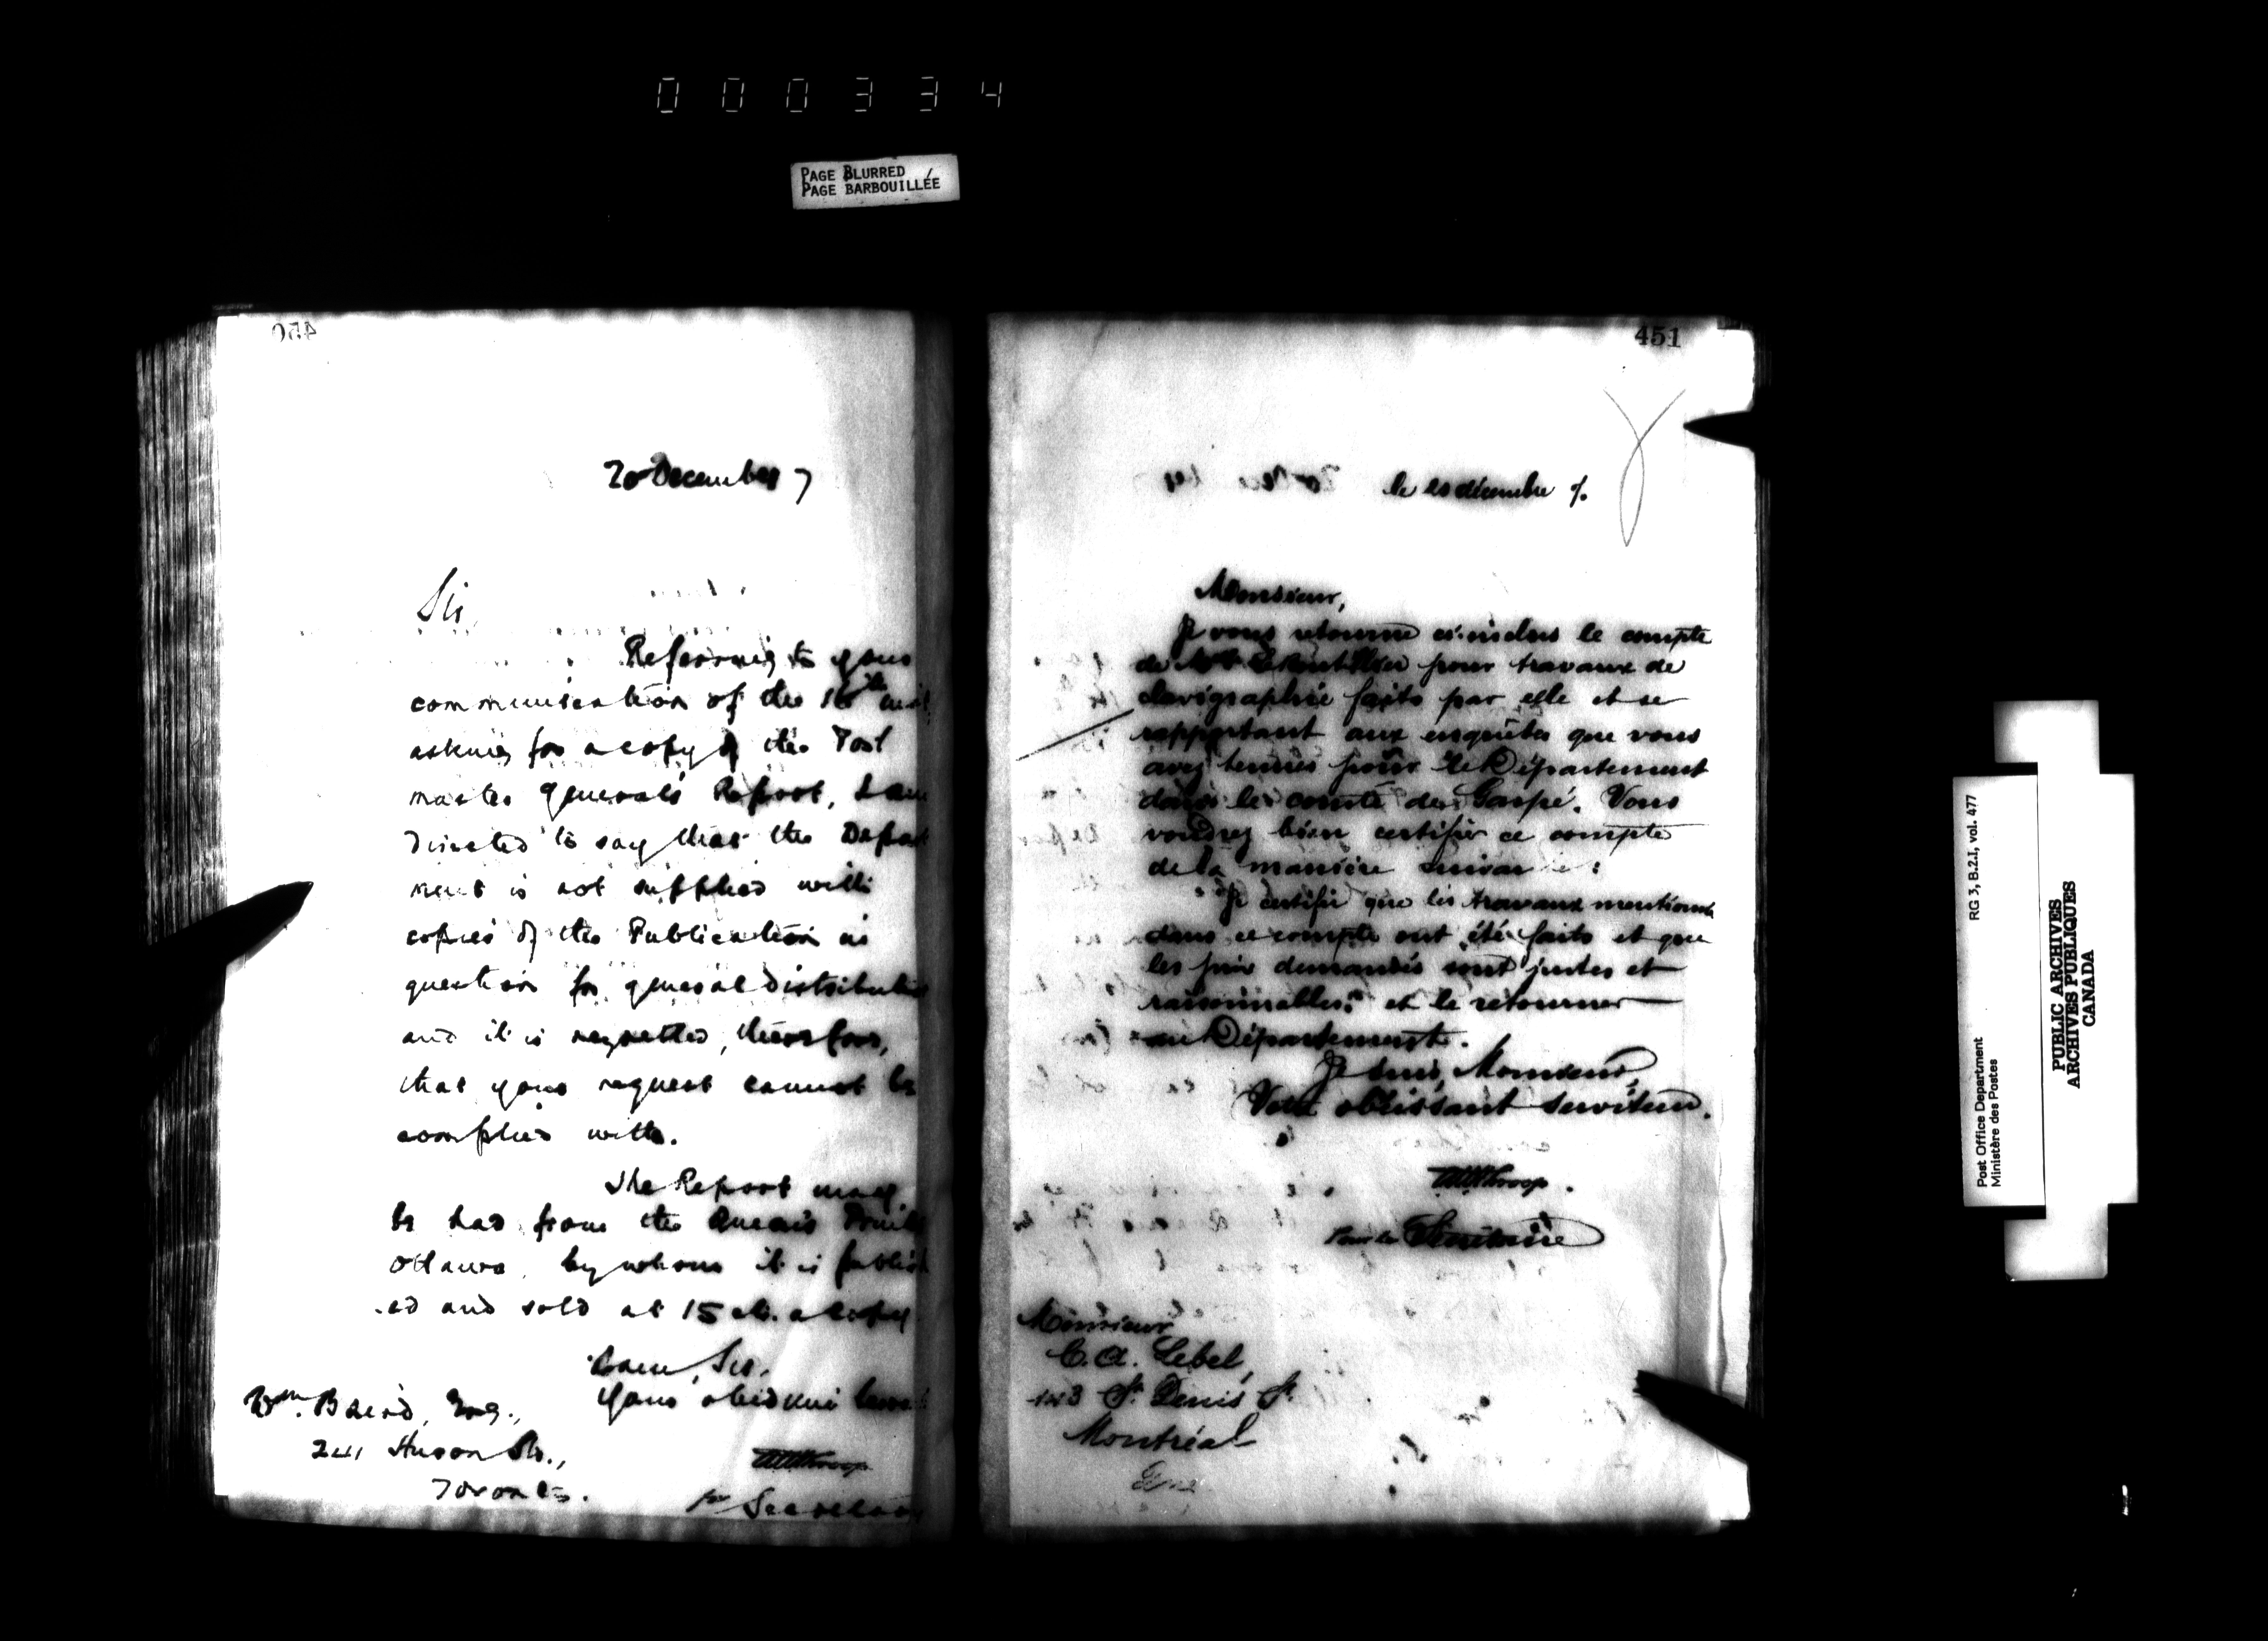 000334
PAGE BLURRED
PAGE BARBOUILLÉE
450
20 December 7
Sir,
Referring to your
communication of the 16th inst.
asking for a copy of the Post
master General's Report, I am
directed to say that the Depart
ment is not supplied with
copies of the Publication in
question for general distribution
and it is regretted, therefore,
that your request cannot be
complied with.
The Report may
be had from the Queen's Printer
Ottawa, by whom it is publish
ed and sold at 15 cts. a copy
I am, Sir,
Your obedient
Wm. Baird, Esq.,
241 Huron St.,
Toronto.
for Secretary
451
le 20 décembre 7.
Monsieur,
Je vous retourne ci-inclus le compte
de pour travaux de
clavigraphie faits par elle et se
rapportant aux enquêtes que vous
avez tenues pour le Département
dans le comté de Gaspé. Vous
voudrez bien certifier ce compte
de la manière suivante :
"Je certifie que les travaux mentionnés
dans ce compte ont été faits et que
les prix demandés sont justes et
raisonnables." et le retourner
au Département.
Je suis, Monsieur,
Votre obéissant serviteur.
Pour le Secrétaire
Monsieur
C. A. Lebel,
143 St. Denis St.
Montréal
RG 3, B.2.1, vol. 477
Post Office Department
Ministère des Postes
PUBLIC ARCHIVES
ARCHIVES PUBLIQUES
CANADA